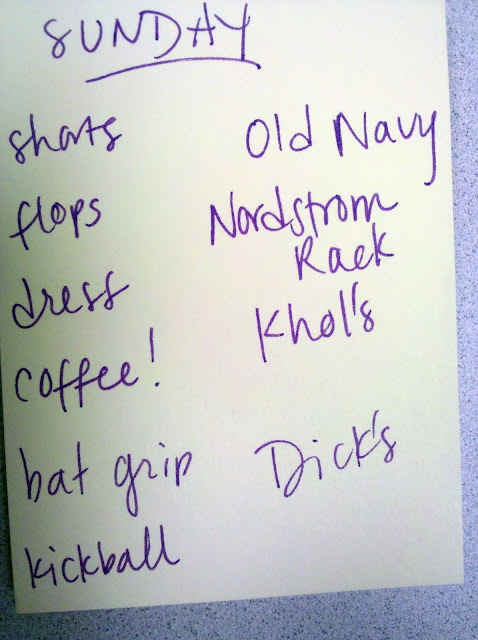 SUNDAY
shorts Old Navy
flops Nordstrom
Rack
dress Khol's
coffee!
bat grip Dick's
kickball